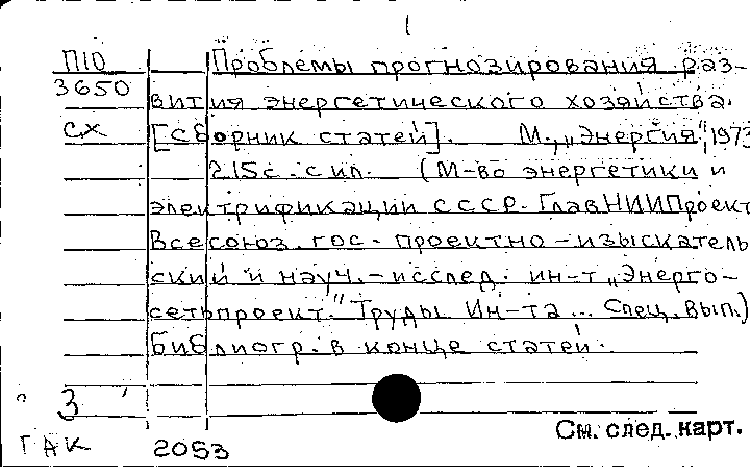 1
П10 Проблемы прогнозирования раз-
3650 вития энергетического хозяйства.
сх [Сборник статей]. М., „Энергия", 1973
215с. с ил. (М-во энергетики и
электрификации СССР. ГлавНИИПроект
Всесоюз. гос. проектно-изыскатель
ский и науч.-исслед. ин-т „Энерго-
сетьпроект." Труды Ин-та... Спец. вып.)
Библиогр. в конце статей.
3
См. след. карт.
ГАК 2053